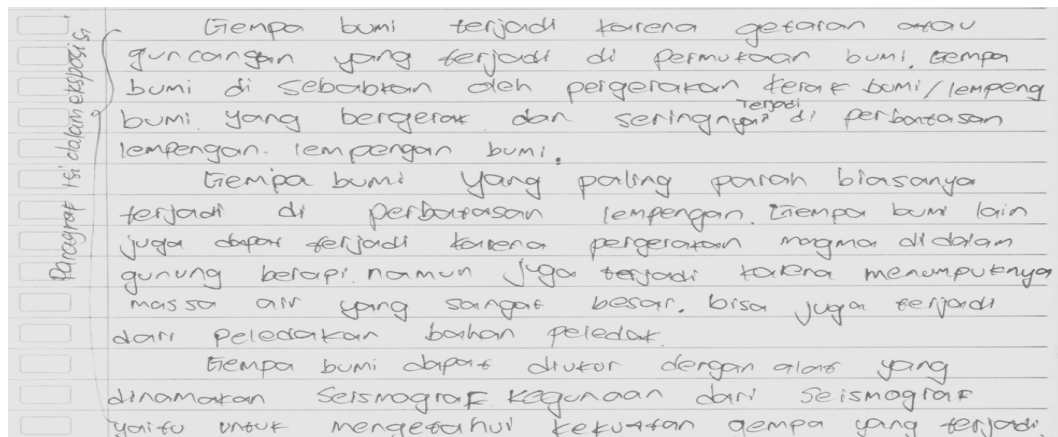 Gempa bumi terjadi karena getaran atau
guncangan yang terjadi di permukaan bumi. Gempa
bumi di sebabkan oleh pergerakan kerak bumi/lempeng
bumi. yang bergerak dan seringnya terjadi di perbatasan
lempengan. lempengan bumi.
Gempa bumi yang paling parah biasanya
terjadi di perbatasan lempengan. Gempa bumi lain
juga dapat terjadi karena pergerakan magma didalam
gunung berapi. namun juga terjadi karena menumpuknya
massa air yang sangat besar. bisa juga terjadi
dari peledakan bahan peledak.
Gempa bumi dapat diukur dengan alat yang
dinamakan Seismograf kegunaan dari Seismograf
yaitu untuk mengetahui kekuatan gempa yang terjadi.
Paragraf isi dalam eksposisi